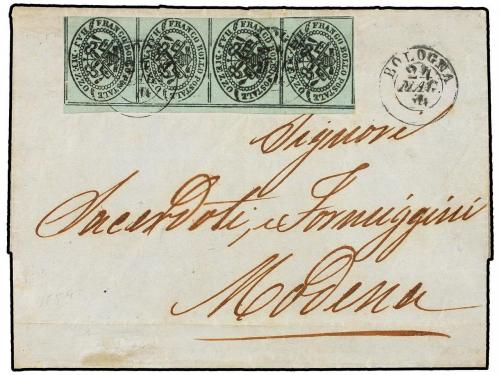 FRANCO BOLLO POSTALE
FRANCO BOLLO POSTALE
FRANCO BOLLO POSTALE
FRANCO BOLLO POSTALE
BOLOGNA
24
MAG.
Signori
Sacerdoti, e Formiggini
Modena